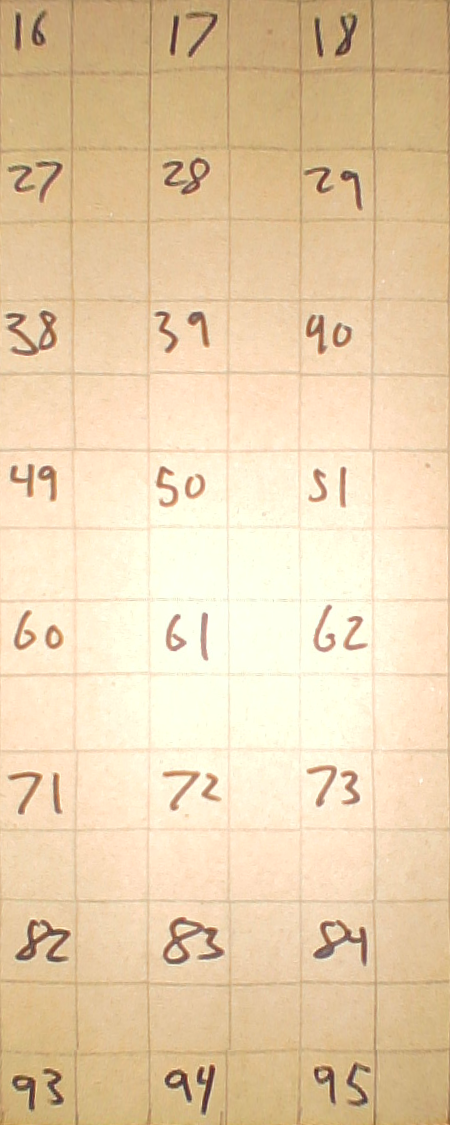 16 17 18
27 28 29
38 39 40
49 50 51
60 61 62
71 72 73
82 83 84
93 94 95